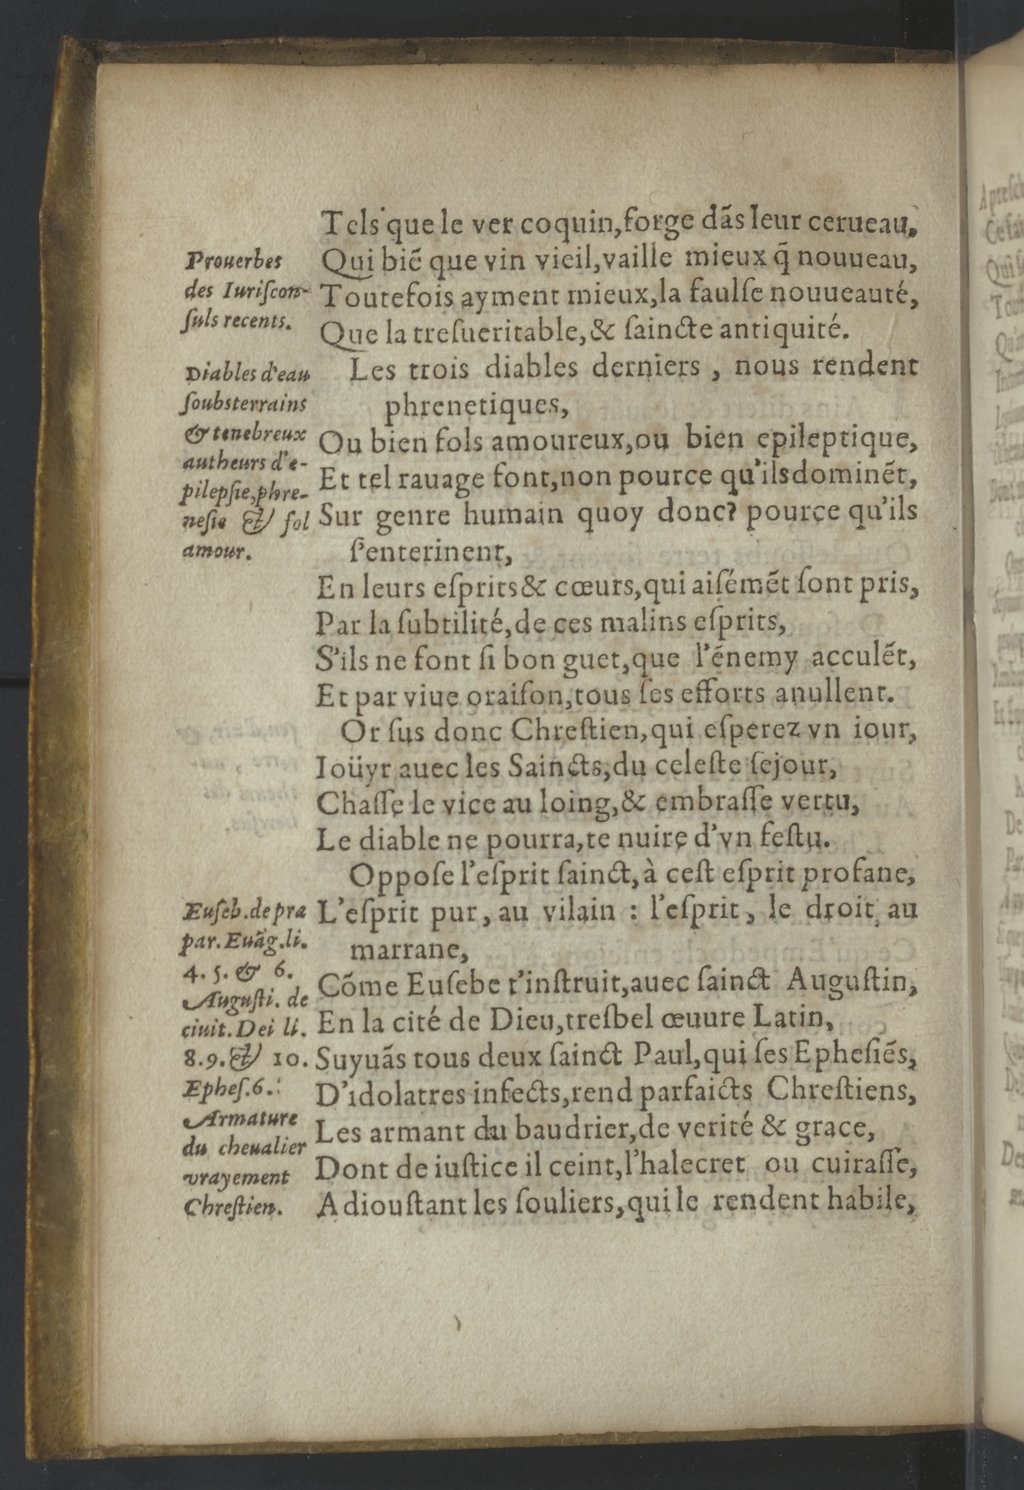 Tels que le ver coquin, forge dãs leur cerueau,
Qui biẽ que vin vieil, vaille mieux q̃ nouueau,
Toutefois ayment mieux, la faulſe nouueauté,
Que la treſueritable, & ſaincte antiquité.
Les trois diables derniers , nous rendent
phrenetiques,
Ou bien fols amoureux, ou bien epileptique,
Et tel rauage font, non pource qu'ils dominẽt,
Sur genre humain quoy donc? pource qu'ils
ſ'enterinent,
En leurs eſprits & cœurs, qui aiſémẽt ſont pris,
Par la ſubtilité, de ces malins eſprits,
S'ils ne font ſi bon guet, que l'énemy acculẽt,
Et par viue oraiſon, tous ſes efforts anullent.
Or ſus donc Chreſtien, qui eſperez vn iour,
Ioüyr auec les Saincts, du celeſte ſejour,
Chaſſe le vice au loing, & embraſſe vertu,
Le diable ne pourra, te nuire d'vn feſtu.
Oppoſe l'eſprit ſainct, à ceſt eſprit profane,
L'eſprit pur, au vilain : l'eſprit, le droit, au
marrane,
Cõme Euſebe t'inſtruit, auec ſainct Auguſtin,
En la cité de Dieu, treſbel œuure Latin,
Suyuãs tous deux ſainct Paul, qui ſes Epheſiẽs,
D'idolatres infects, rend parfaicts Chreſtiens,
Les armant du baudrier, de verité & grace,
Dont de iuſtice il ceint, l'halecret ou cuiraſſe,
Adiouſtant les ſouliers, qui le rendent habile,
Prouerbes
des Iuriſcon-
ſuls recents.
Diables d'eau
ſoubsterrains
& tenebreux
autheurs d'e-
pilepſie, phre-
neſie & fol
amour.
Euſeb. de pra
par. Euãg. li.
4. 5. & 6.
Auguſti. de
ciuit. Dei li.
8. 9. & 10.
Epheſ. 6.
Armature
du cheualier
vrayement
Chreſtien.